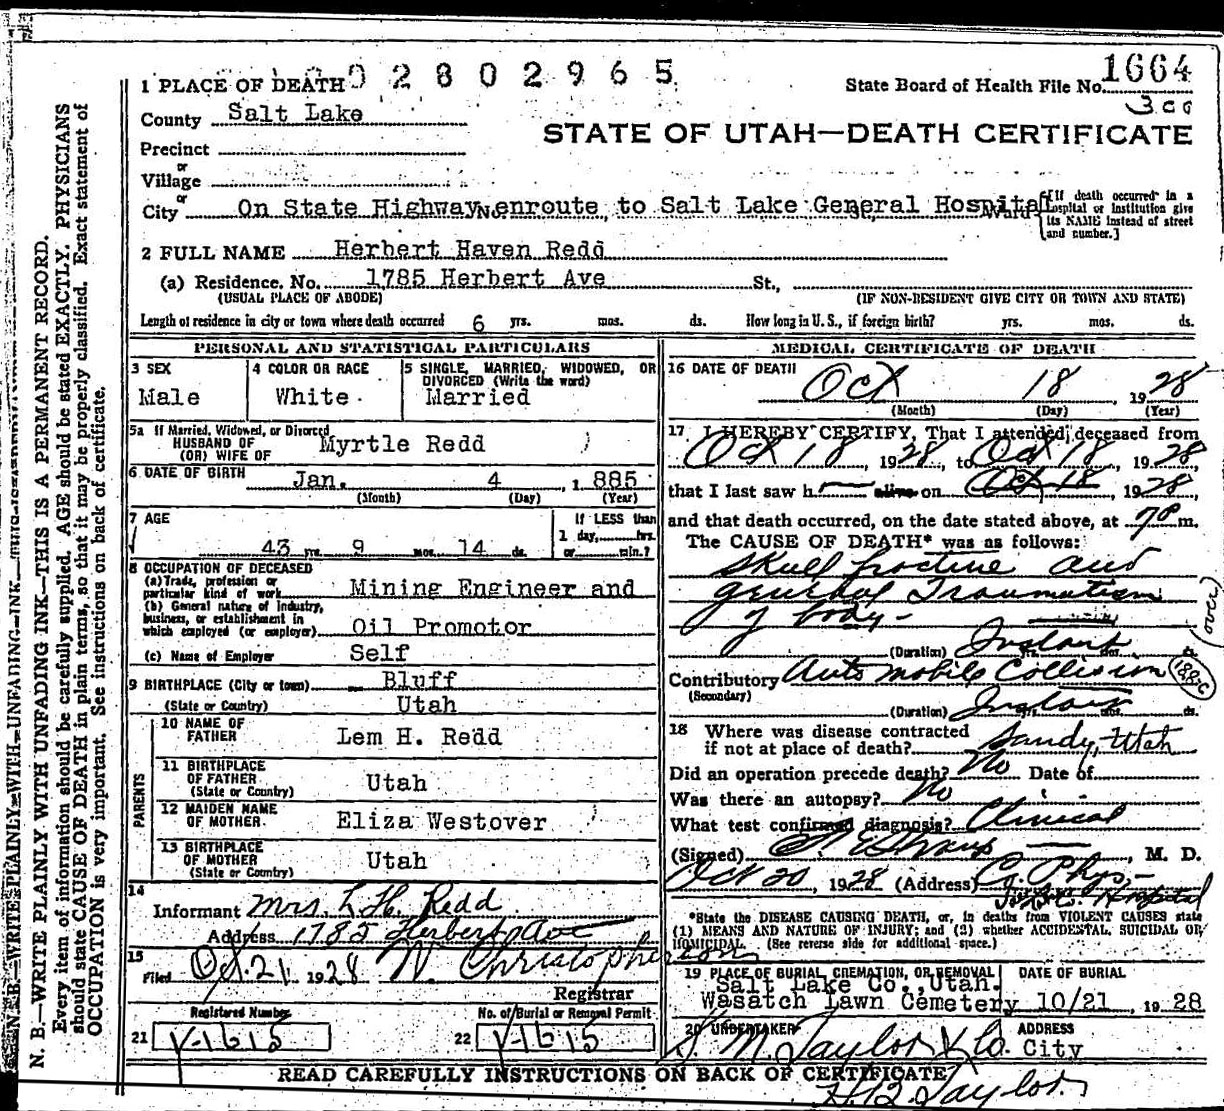 02802965
1 PLACE OF DEATH
State Board of Health File No. 1664
300
County Salt Lake
STATE OF UTAH—DEATH CERTIFICATE
Precinct
or
Village
or
City On State Highway No. enroute to Salt Lake General Hospital
[If death occurred in a Hospital or Institution give its NAME instead of street and number.]
2 FULL NAME Herbert Haven Redd
(a) Residence. No. 1785 Herbert Ave St.,
(USUAL PLACE OF ABODE) (IF NON-RESIDENT GIVE CITY OR TOWN AND STATE)
Length of residence in city or town where death occurred 6 yrs. mos. ds. How long in U. S., if foreign birth? yrs. mos. ds.
PERSONAL AND STATISTICAL PARTICULARS
3 SEX
Male
4 COLOR OR RACE
White
5 SINGLE, MARRIED, WIDOWED, OR
DIVORCED (Write the word)
Married
5a If Married, Widowed, or Divorced
HUSBAND OF
(OR) WIFE OF
Myrtle Redd
6 DATE OF BIRTH
Jan. 4, 1885
(Month) (Day) (Year)
7 AGE
43 yrs. 9 mos. 14 ds.
If LESS than
1 day, hrs.
or min.?
8 OCCUPATION OF DECEASED
(a) Trade, profession or
particular kind of work Mining Engineer and
(b) General nature of industry,
business, or establishment in
which employed (or employer) Oil Promotor
(c) Name of Employer Self
9 BIRTHPLACE (City or town) Bluff
(State or Country) Utah
PARENTS
10 NAME OF
FATHER Lem H. Redd
11 BIRTHPLACE
OF FATHER
(State or Country) Utah
12 MAIDEN NAME
OF MOTHER Eliza Westover
13 BIRTHPLACE
OF MOTHER
(State or Country) Utah
14
Informant Mrs. L H. Redd
Address 1785 Herbert Ave
15
Filed Oct. 21 1928 W Christopherson
Registrar
Registered Number
21 V-1615
No. of Burial or Removal Permit
22 V-1615
MEDICAL CERTIFICATE OF DEATH
16 DATE OF DEATH
Oct 18, 1928
(Month) (Day) (Year)
17 I HEREBY CERTIFY, That I attended deceased from
Oct 18, 1928, to Oct 18, 1928
that I last saw h alive on Oct 18, 1928,
and that death occurred, on the date stated above, at 7P m.
The CAUSE OF DEATH* was as follows:
Skull fracture and
general Traumatism
of body-
(over)
(Duration) Instant yrs. mos. ds.
Contributory Automobile Collision
(Secondary)
(Duration) Instant yrs. mos. ds.
18 Where was disease contracted
if not at place of death? Sandy, Utah
Did an operation precede death? No Date of
Was there an autopsy? No
What test confirmed diagnosis? Clinical
(Signed) , M. D.
Oct 20, 1928 (Address) Co. Phys.-
Hospital
*State the DISEASE CAUSING DEATH, or, in deaths from VIOLENT CAUSES state
(1) MEANS AND NATURE OF INJURY; and (2) whether ACCIDENTAL, SUICIDAL OR
HOMICIDAL. (See reverse side for additional space.)
19 PLACE OF BURIAL, CREMATION, OR REMOVAL
DATE OF BURIAL
Salt Lake Co., Utah.
Wasatch Lawn Cemetery 10/21, 1928
20 UNDERTAKER
ADDRESS
S. M. Taylor & Co. City
H.B. Taylor.
READ CAREFULLY INSTRUCTIONS ON BACK OF CERTIFICATE
N. B.—WRITE PLAINLY WITH UNFADING INK—THIS IS A PERMANENT RECORD.
Every item of information should be carefully supplied. AGE should be stated EXACTLY. PHYSICIANS
should state CAUSE OF DEATH in plain terms, so that it may be properly classified. Exact statement of
OCCUPATION is very important. See instructions on back of certificate.